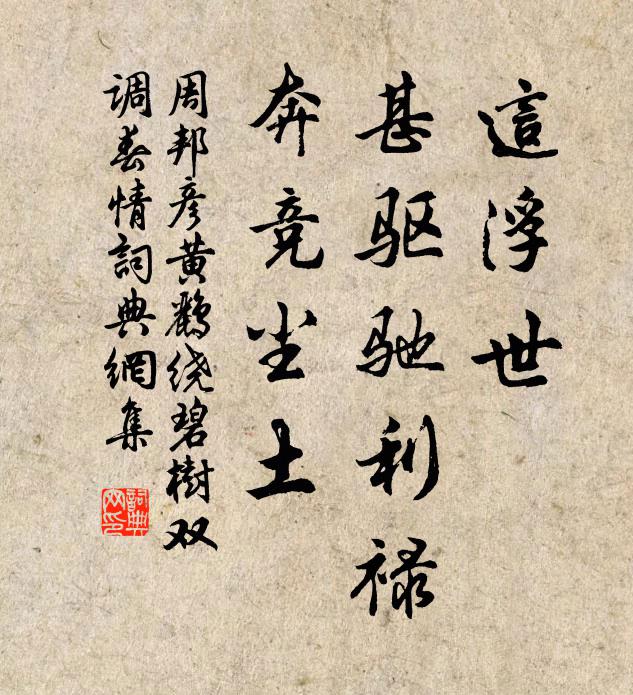 這浮世
甚驱驰利禄
奔竞尘土
周邦彦黄鹂绕碧樹双
调春情詞典網集
詞典网印